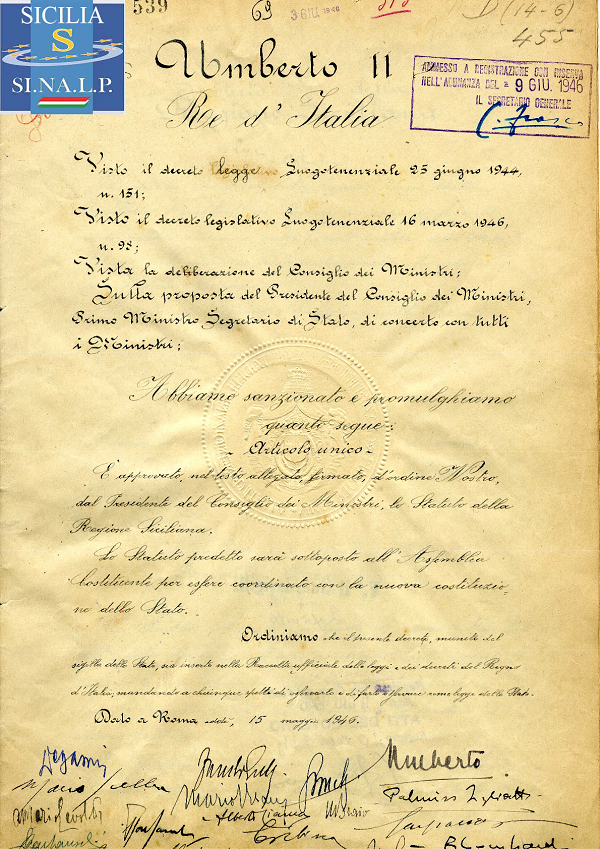 SICILIA
S
SI.NA.L.P.
539
69
3 GIU. 1946
D (14-6)
455
Umberto II
Re d'Italia
AMMESSO A REGISTRAZIONE CON RISERVA
NELL'ADUNANZA DEL 9 GIU. 1946
IL SEGRETARIO GENERALE
Visto il decreto legge Luogotenenziale 25 giugno 1944,
n. 151;
Visto il decreto legislativo Luogotenenziale 16 marzo 1946,
n. 98;
Vista la deliberazione del Consiglio dei Ministri;
Sulla proposta del Presidente del Consiglio dei Ministri,
Primo Ministro Segretario di Stato, di concerto con tutti
i Ministri;
Abbiamo sanzionato e promulghiamo
quanto segue:
- Articolo unico -
È approvato, nel testo allegato, firmato, d'ordine Nostro,
dal Presidente del Consiglio dei Ministri, lo Statuto della
Regione Siciliana.
Lo Statuto predetto sarà sottoposto all'Assemblea
Costituente per essere coordinato con la nuova costituzio-
ne dello Stato.
Ordiniamo che il presente decreto, munito del
sigillo dello Stato, sia inserto nella Raccolta ufficiale delle leggi e dei decreti del Regno
d'Italia, mandando a chiunque spetti di osservarlo e di farlo osservare come legge dello Stato.
Dato a Roma addì, 15 maggio 1946.
Umberto
Degasperi
Palmiro Togliatti